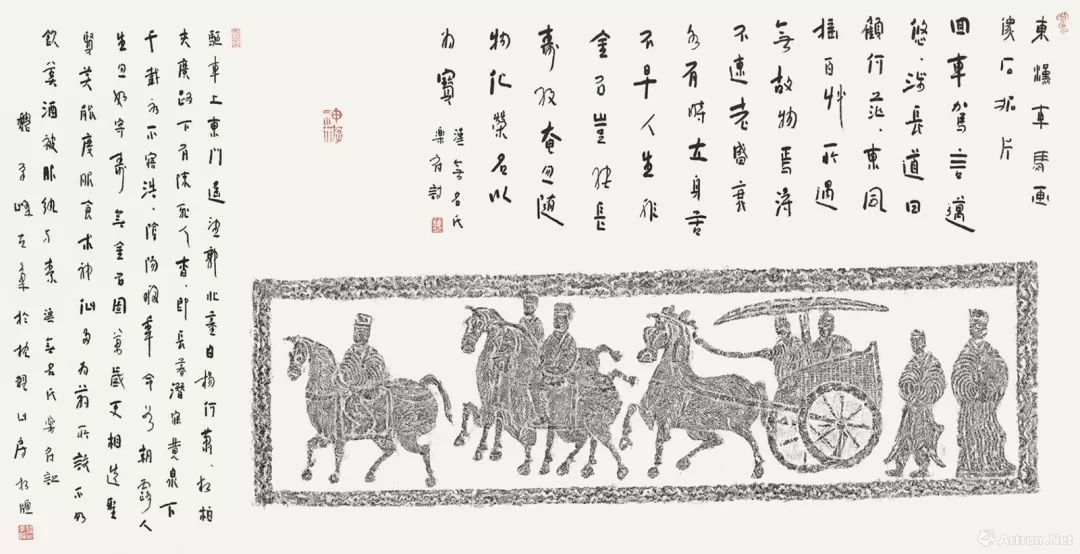 東漢車馬画
像石拓片
回車駕言邁
悠、涉長道四
顧何茫、東風
搖百艸所遇
無故物焉得
不速老盛衰
各有時立身苦
不早人生非
金石豈能長
壽考奄忽随
物化榮名以
為寶
漢無名氏
樂府詩
驅車上東門遥望郭北墓白楊何蕭、松柏
夾廣路下有陳死人杳、即長暮潛寐黄泉下
千載永不寤浩、陰陽移年命如朝露人
生忽如寄壽無金石固萬歲更相送聖
賢莫能度服食求神仙多为藥所誤不如
飲美酒被服紈与素漢无名氏樂府詩
於山房
Artron.Net